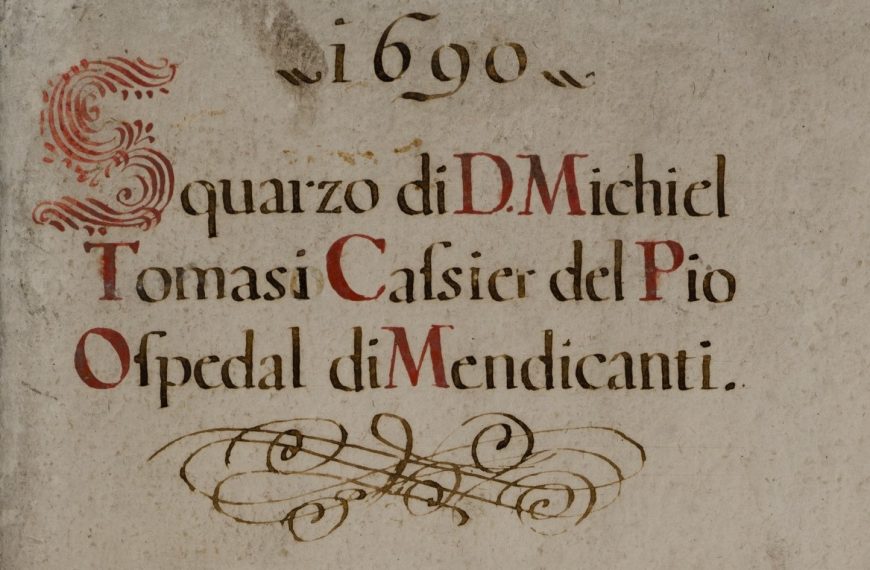 1690
Squarzo di D. Michiel
Tomasi Caſsier del Pio
Oſpedal di Mendicanti.